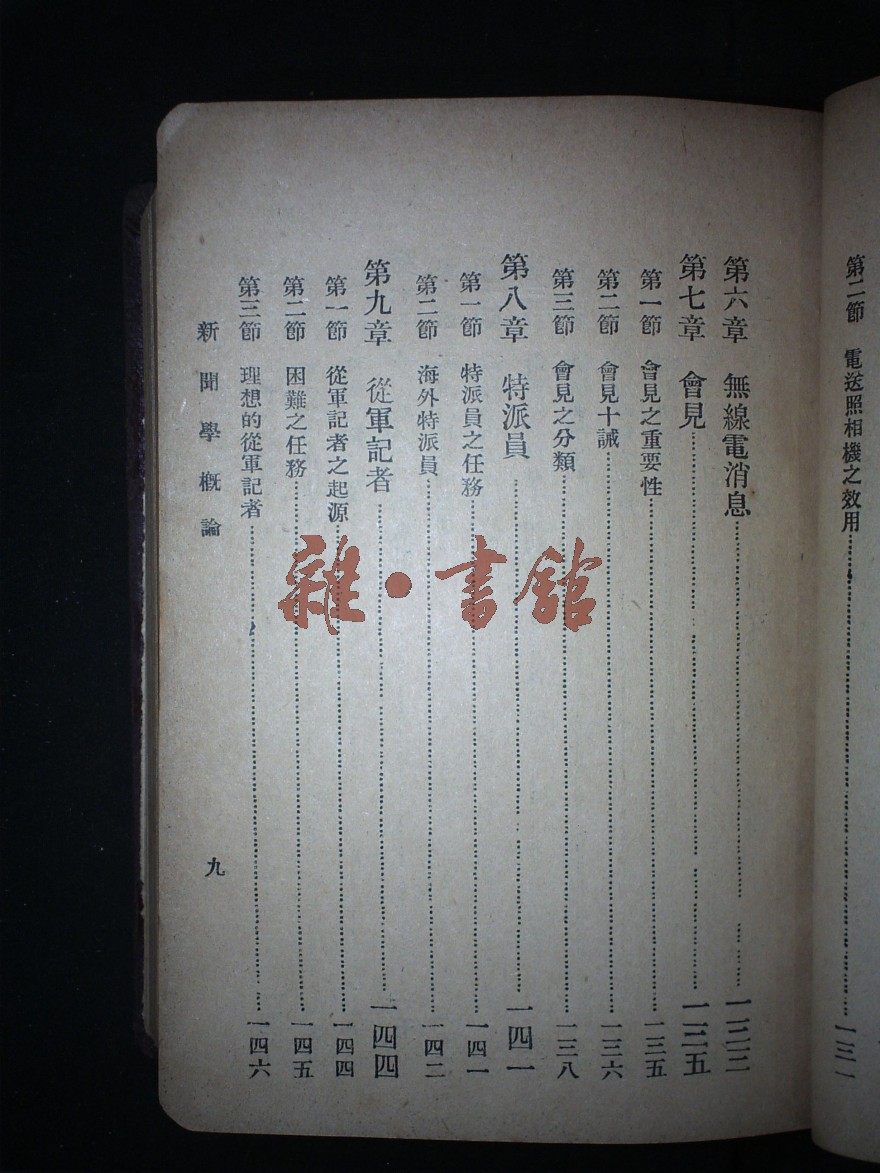 第二節　電送照相機之效用……一三一
第六章　無線電消息……一三三
第七章　會見……一三五
第一節　會見之重要性……一三五
第二節　會見十誡……一三六
第三節　會見之分類……一三八
第八章　特派員……一四一
第一節　特派員之任務……一四一
第二節　海外特派員……一四二
第九章　從軍記者……一四四
第一節　從軍記者之起源……一四四
第二節　困難之任務……一四五
第三節　理想的從軍記者……一四六
新聞學概論　九
雜·書館